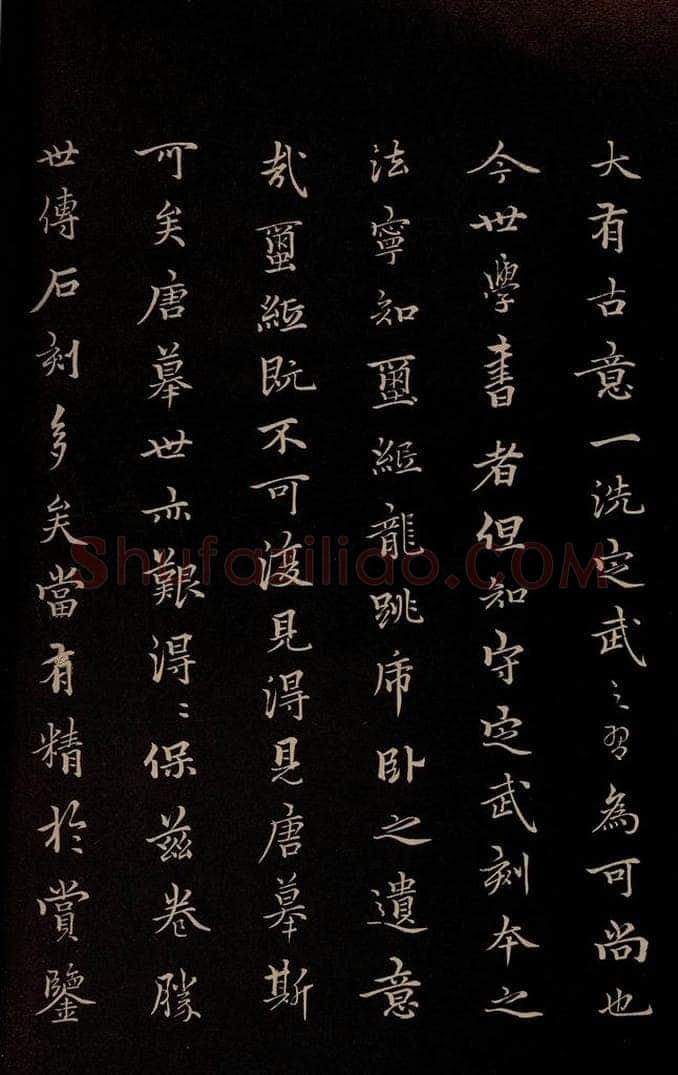 大有古意一洗定武之習為可尚也
今世學書者但知守定武刻本之
法寧知蠒紙龍跳虎卧之遺意
哉蠒紙既不可復見得見唐摹斯
可矣唐摹世亦艱得〻保茲卷勝
世傳石刻多矣當有精於賞鑒
Shufaziliao.COM